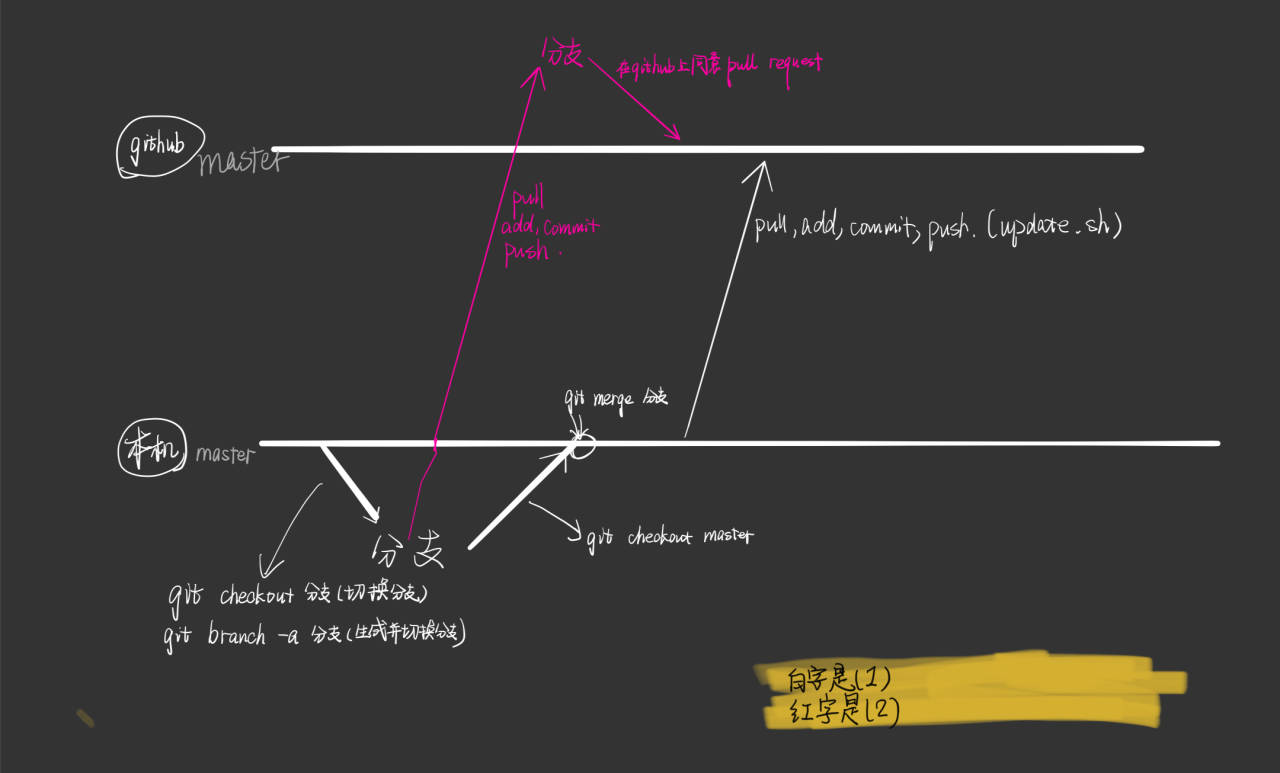 分支
在github上同意pull request
github
master
pull
add, commit
push.
pull, add, commit, push. (update.sh)
git merge 分支
本机
master
分支
git checkout master
git checkout 分支(切换分支)
git branch -a 分支(生成并切换分支)
白字是(1)
红字是(2)